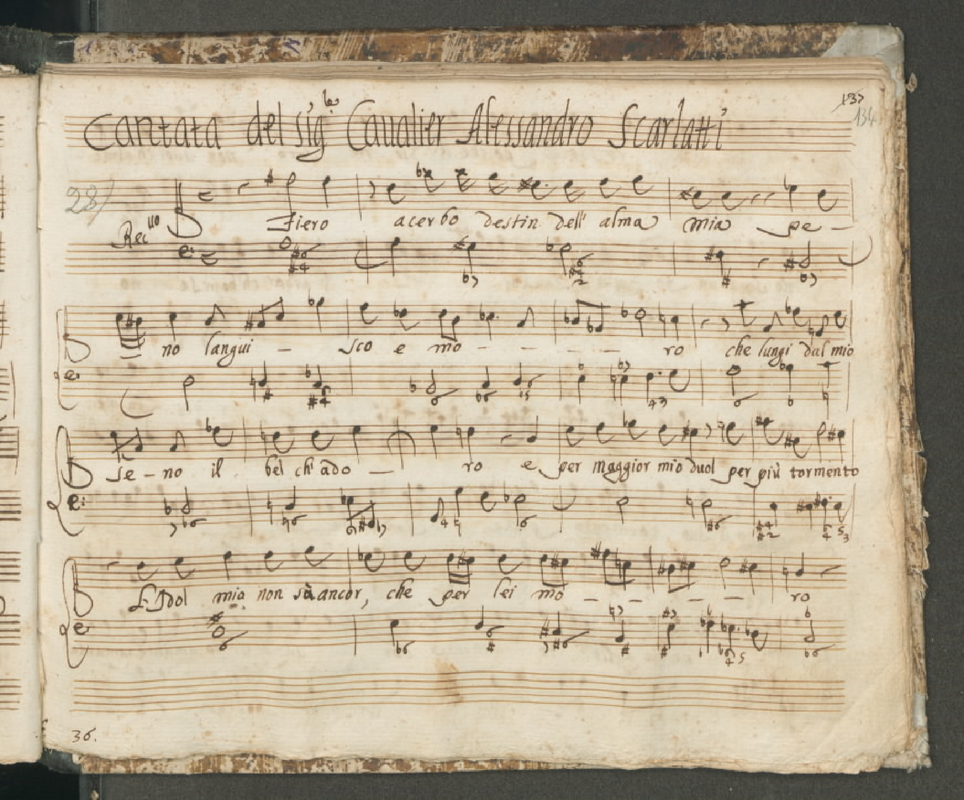 137
134
Cantata del Sig.re Caualier Alessandro Scarlatti
28)
Rec.iuo Fiero acerbo destin dell' alma mia pe -
no langui - sco e mo - - - - - - ro che lungi dal mio
se - no il bel ch' ado - ro e per maggior mio duol per più tormento
L'Idol mio non sà ancor, che per lei mo - - - - - ro
36.